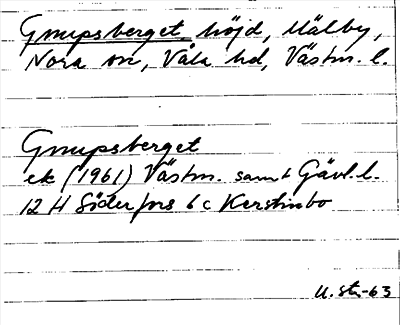 Gnupsberget, höjd, Mälby,
Nora sn, Våla hd, Västm. l.
Gnupsberget
ek (1961) Västm. samt Gävl. l.
12 H Söderfors 6 c Kerstinbo
U. str-63